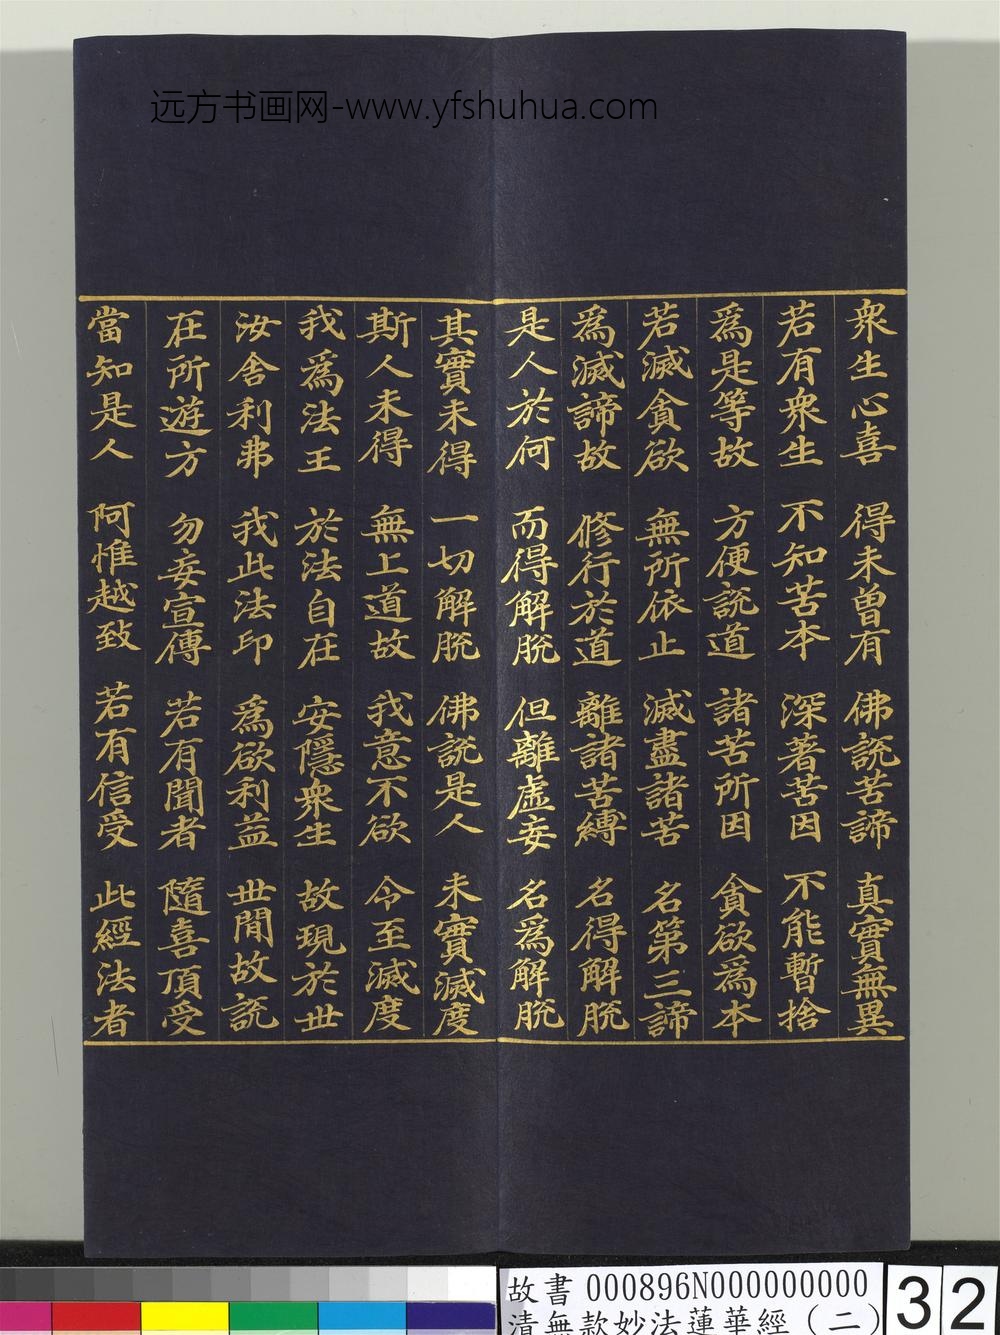 远方书画网-www.yfshuhua.com
衆生心喜 得未曽有 佛說苦諦 真實無異
若有衆生 不知苦本 深著苦因 不能暫捨
為是等故 方便說道 諸苦所因 貪欲爲本
若滅貪欲 無所依止 滅盡諸苦 名第三諦
爲滅諦故 修行於道 離諸苦縛 名得解脫
是人於何 而得解脫 但離虛妄 名爲解脫
其實未得 一切解脫 佛說是人 未實滅度
斯人未得 無上道故 我意不欲 令至滅度
我爲法王 於法自在 安隱衆生 故現於世
汝舍利弗 我此法印 爲欲利益 世間故說
在所遊方 勿妄宣傳 若有聞者 隨喜頂受
當知是人 阿惟越致 若有信受 此經法者
故書 000896N000000000
清無款妙法蓮華經（二）
32